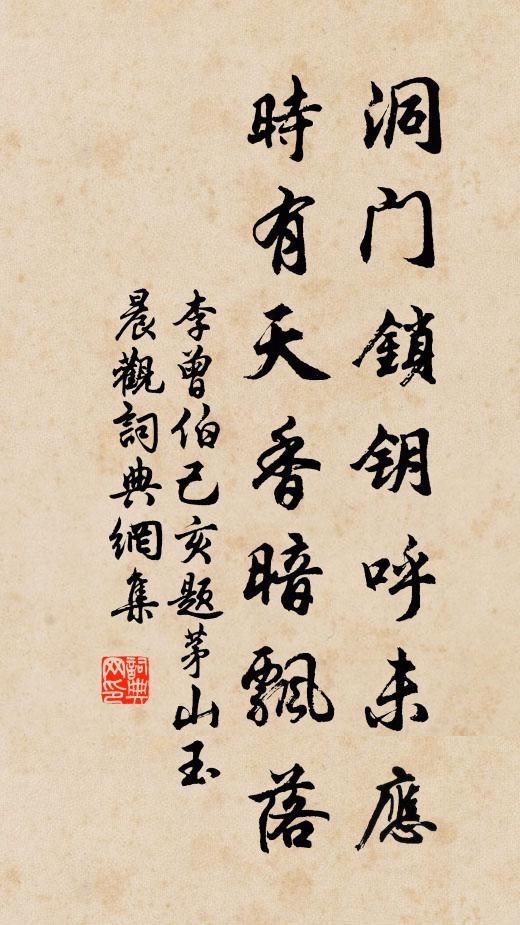 洞门鎖钥呼未應
時有天香暗飄落
李曾伯己亥題茅山玉
晨觀詞典網集
詞典网印